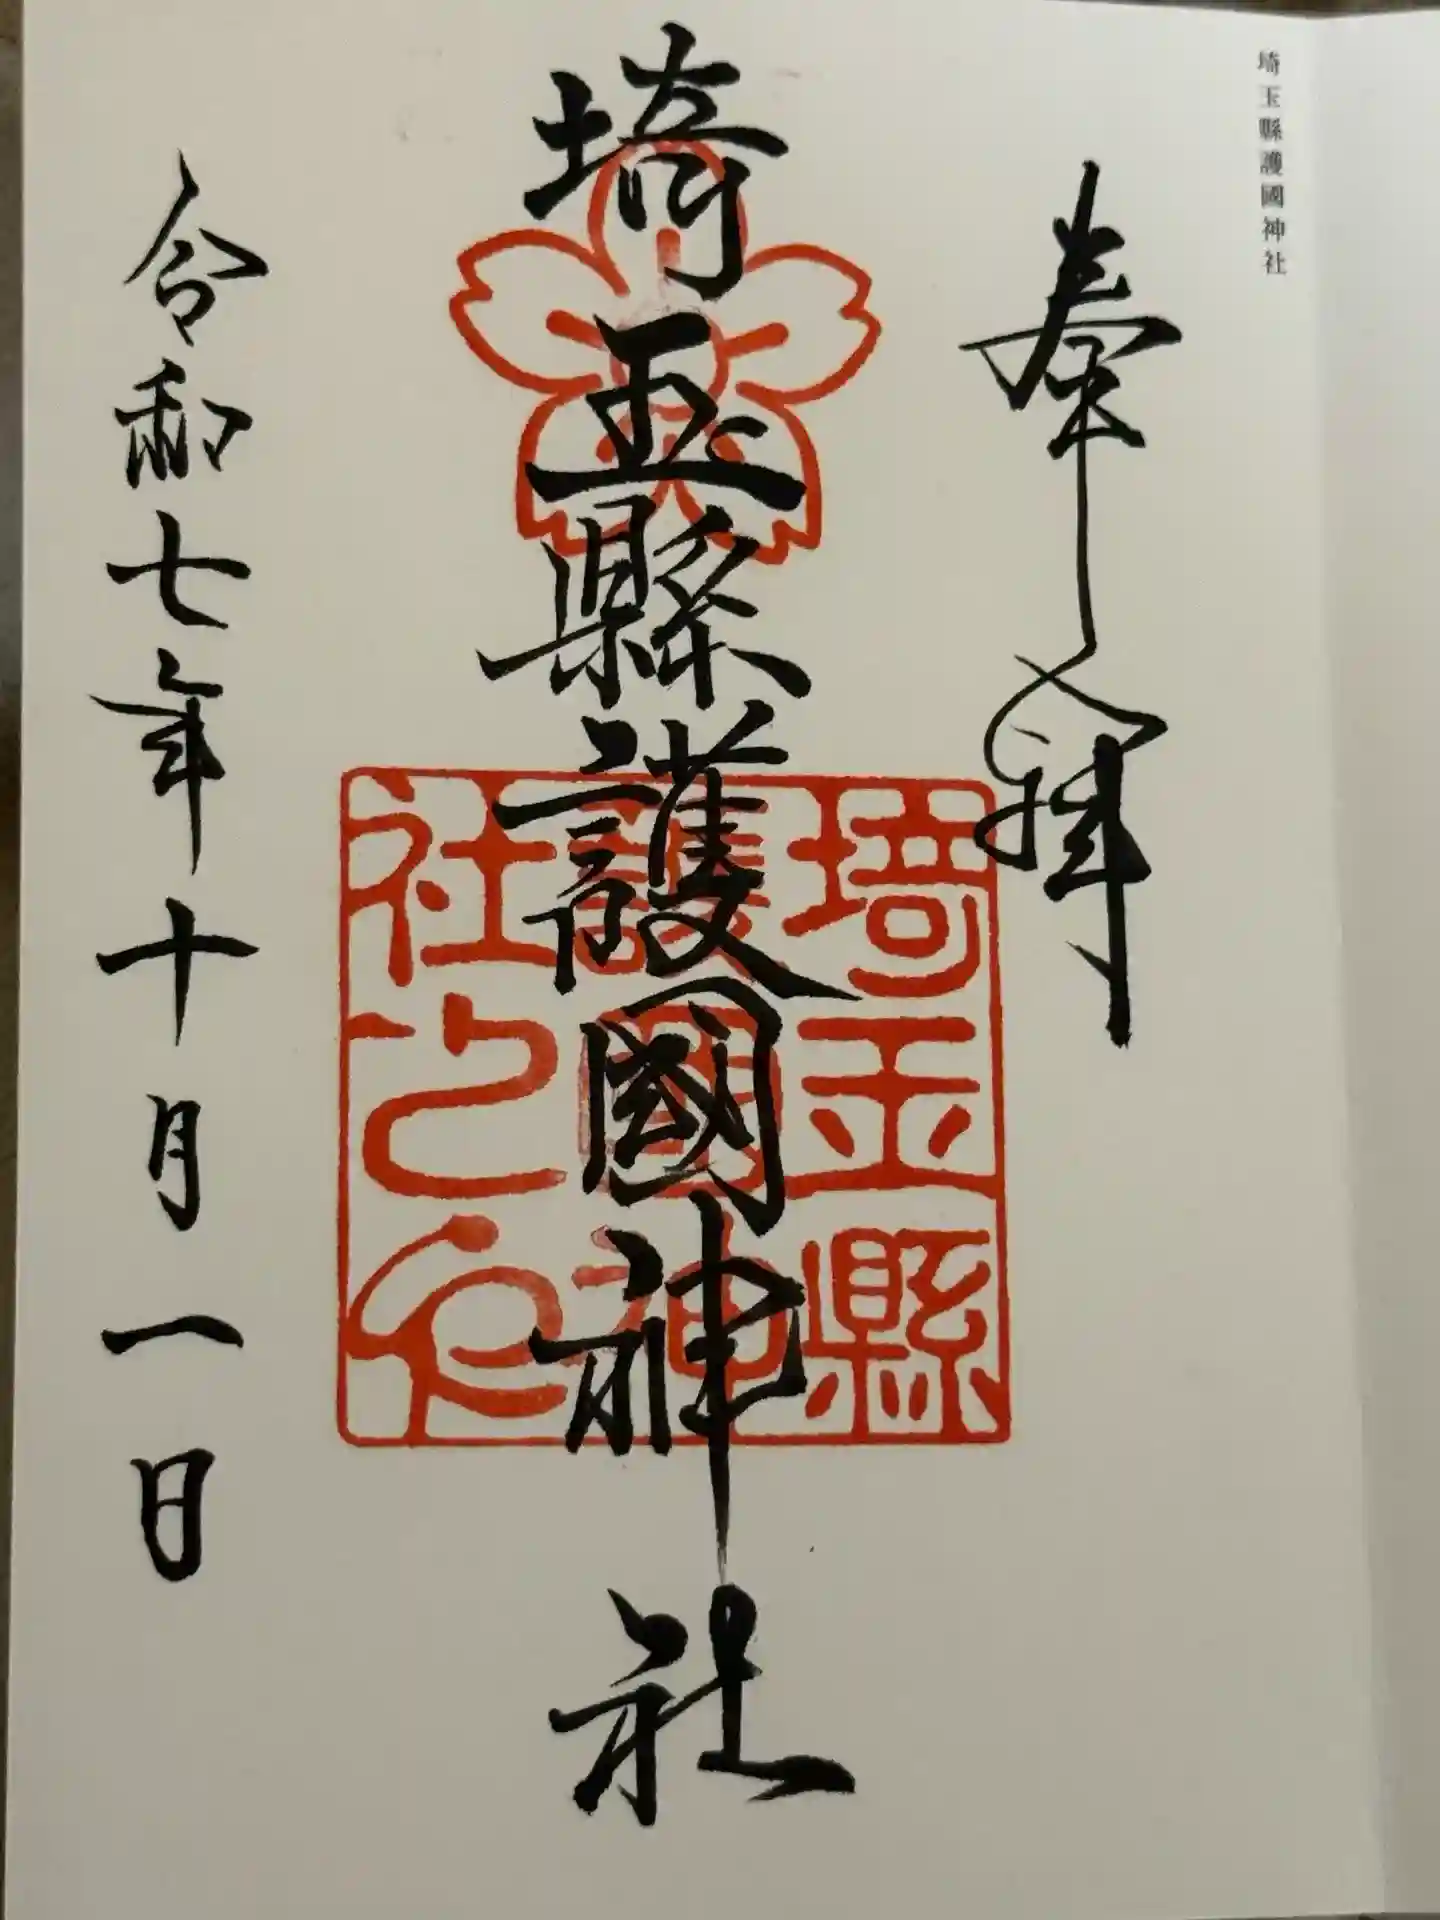 埼玉縣護國神社
奉拝
埼玉縣護國神社
埼玉縣
護國神
社之印
令和七年十月一日